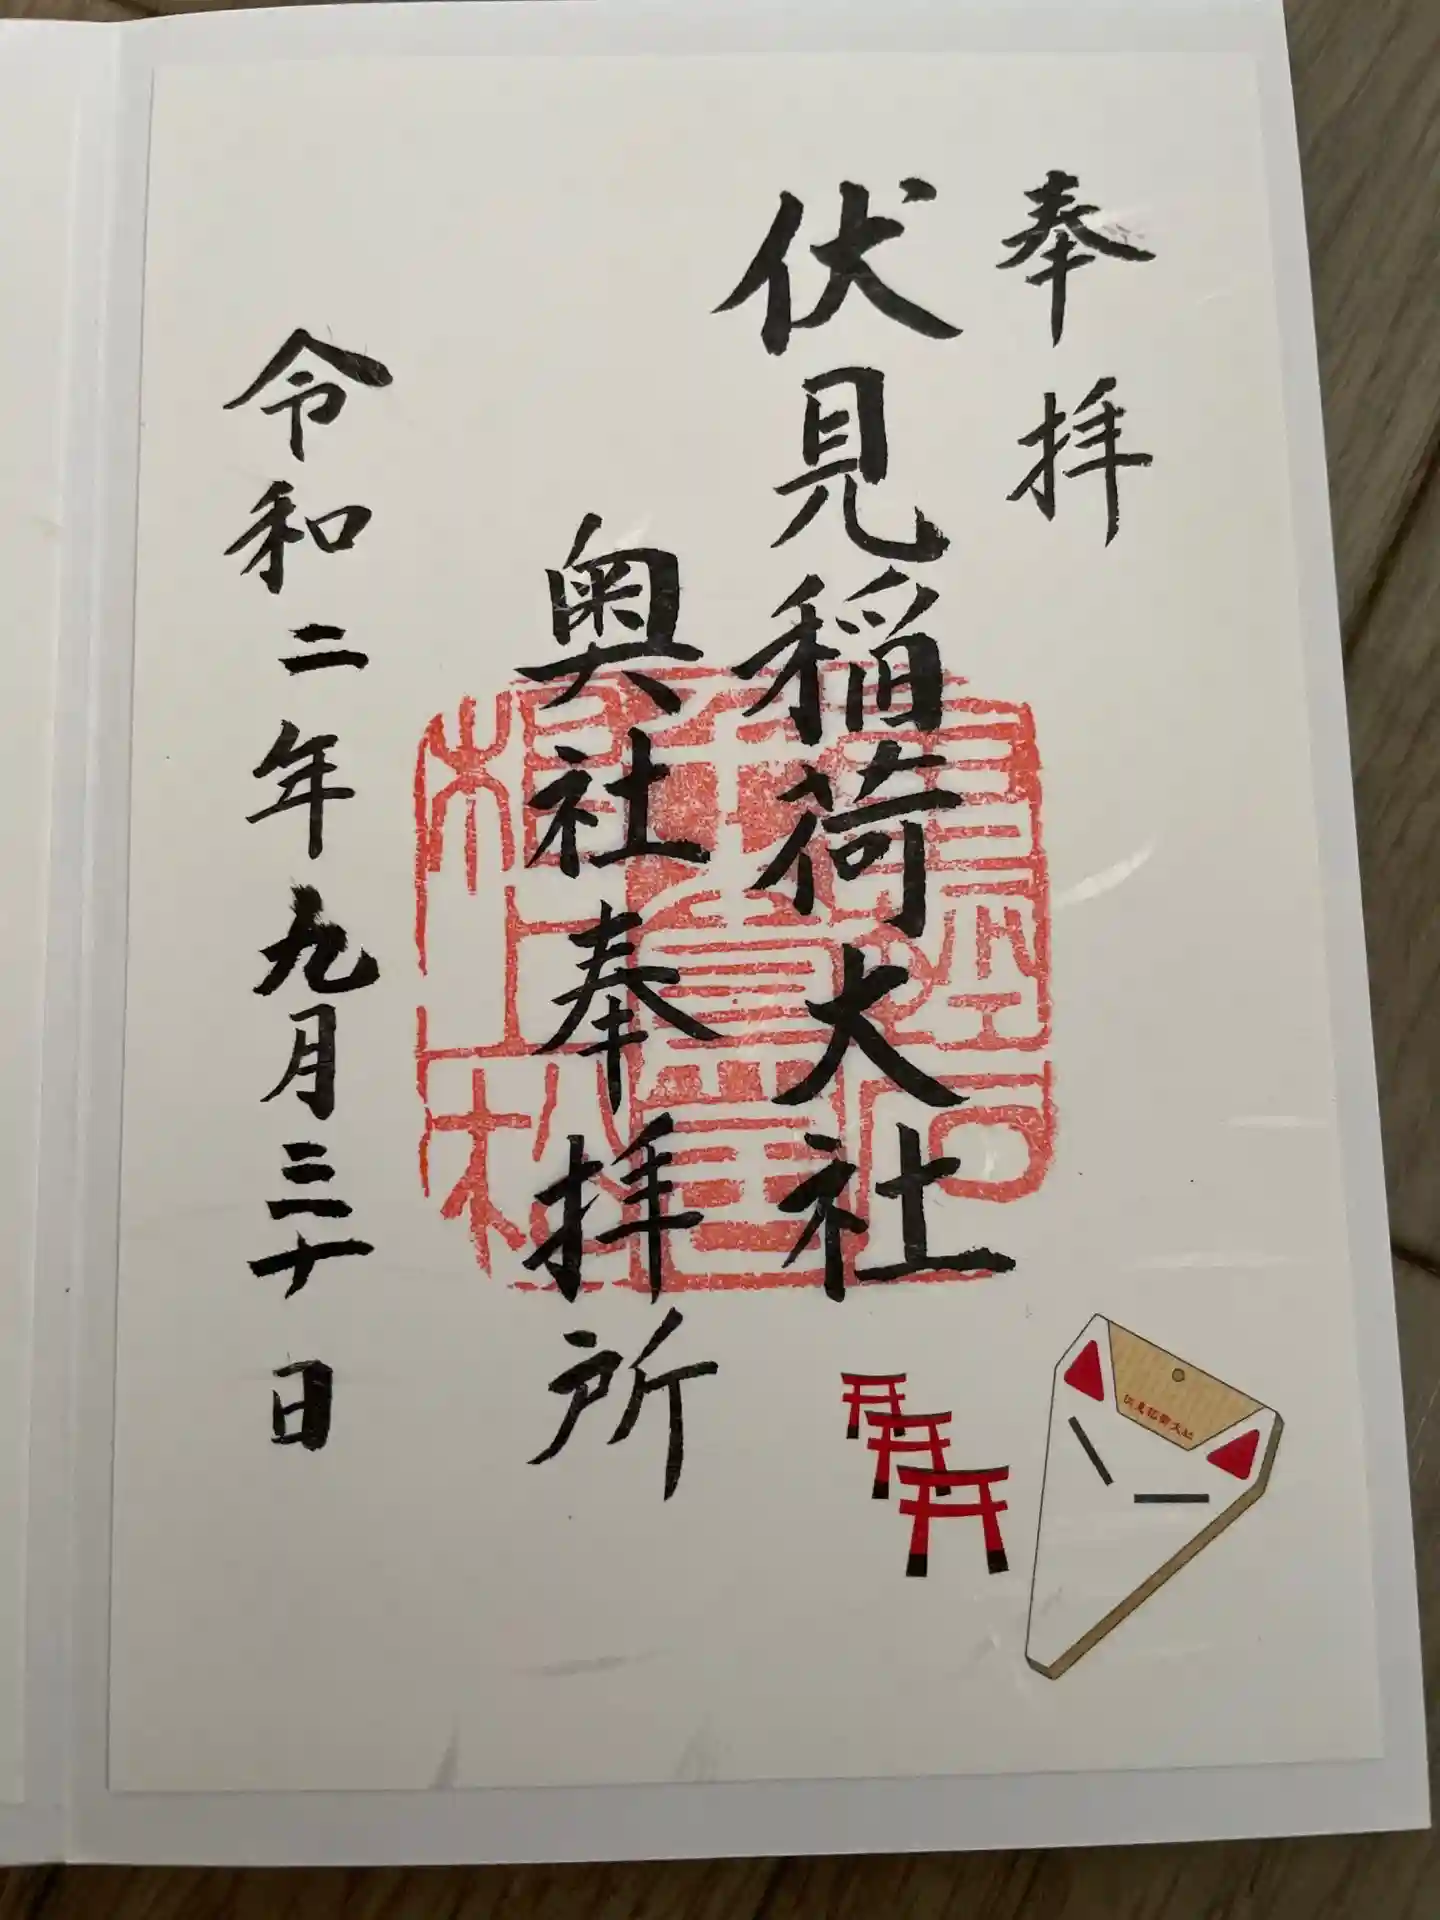 奉拝
伏見稲荷大社
奥社奉拝所
令和二年九月三十日
伏見稲荷大社